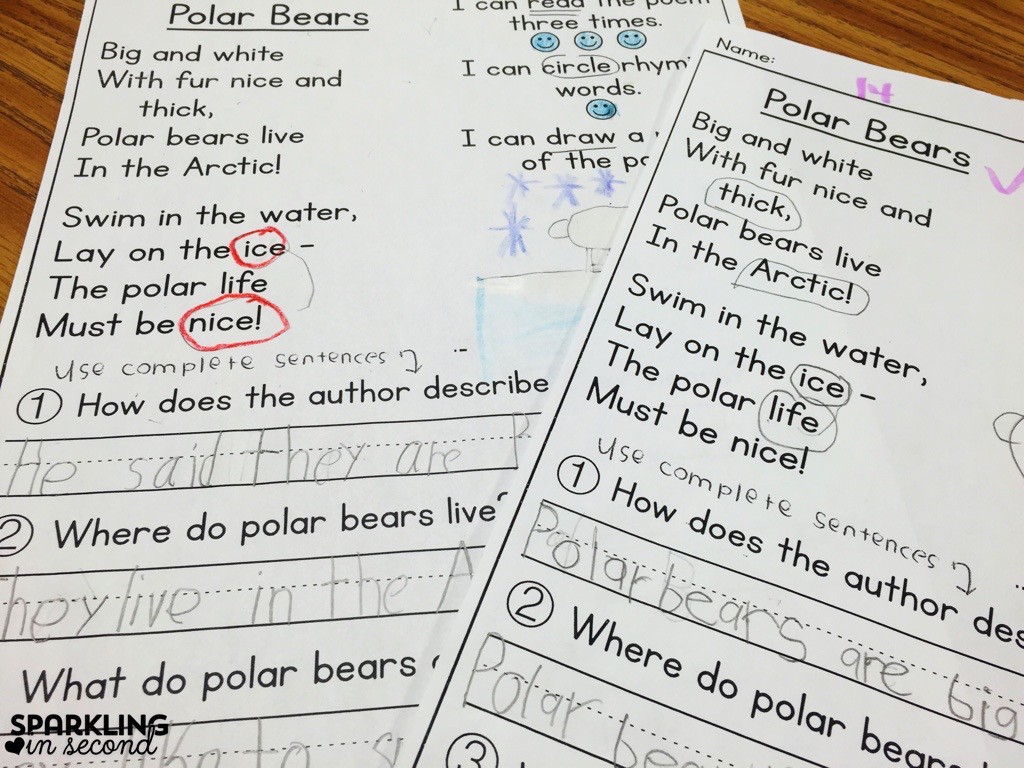 Polar Bears
Big and white
With fur nice and
thick,
Polar bears live
In the Arctic!
Swim in the water,
Lay on the ice –
The polar life
Must be nice!
use complete sentences
1 How does the author describe
He said they are
2 Where do polar bears live?
They live in the A
What do polar bears
I can read the poem
three times.
I can circle rhym
words.
I can draw a
of the po
Name:
14
Polar Bears
Big and white
With fur nice and
thick,
Polar bears live
In the Arctic!
Swim in the water,
Lay on the ice –
The polar life
Must be nice!
use complete sentences
1 How does the author des
Polar bears are big
2 Where do polar bears
Polar bea
3
SPARKLING
in second